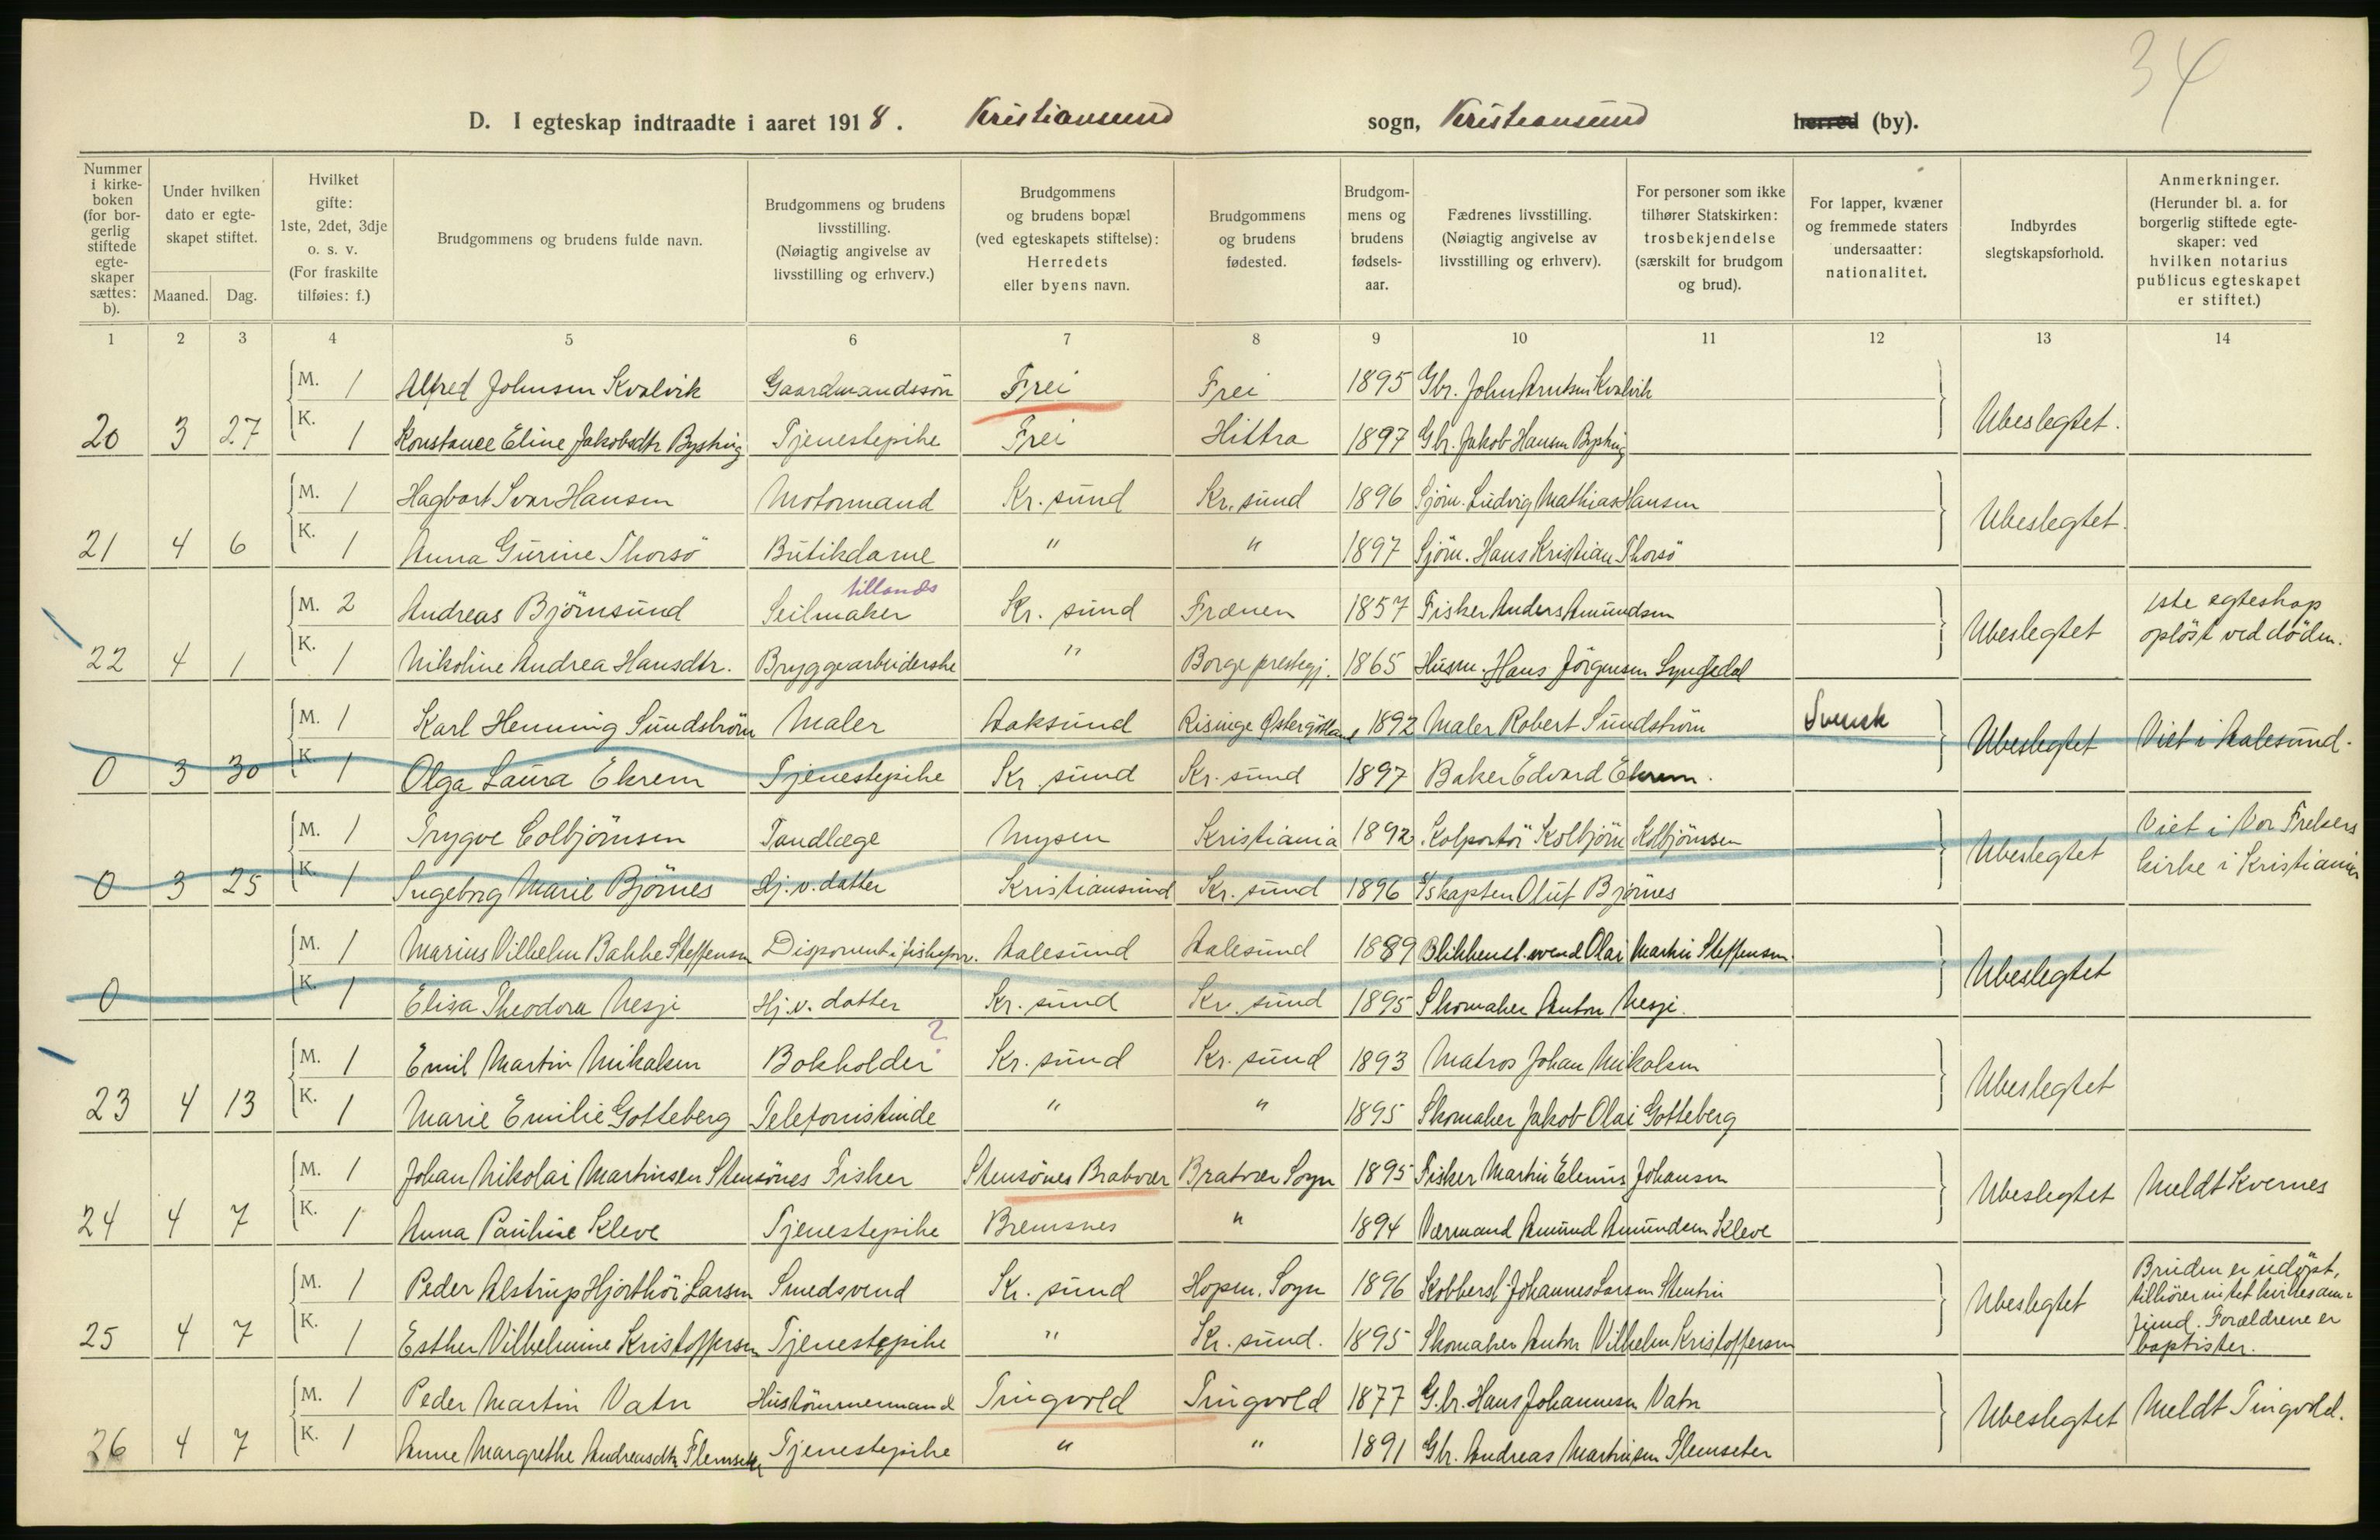 34
D. I egteskap indtraadte i aaret 1918. Kristiansund sogn, Kristiansund herred (by).
Nummer i kirkeboken (for borgerlig stiftede egteskaper sættes: b).
Under hvilken dato er egteskapet stiftet.
Maaned. Dag.
Hvilket gifte: 1ste, 2det, 3dje o. s. v. (For fraskilte tilføies: f.)
Brudgommens og brudens fulde navn.
Brudgommens og brudens livsstilling. (Nøiagtig angivelse av livsstilling og erhverv.)
Brudgommens og brudens bopæl (ved egteskapets stiftelse): Herredets eller byens navn.
Brudgommens og brudens fødested.
Brudgommens og brudens fødselsaar.
Fædrenes livsstilling. (Nøiagtig angivelse av livsstilling og erhverv).
For personer som ikke tilhører Statskirken: trosbekjendelse (særskilt for brudgom og brud).
For lapper, kvæner og fremmede staters undersaatter: nationalitet.
Indbyrdes slegtskapsforhold.
Anmerkninger. (Herunder bl. a. for borgerlig stiftede egteskaper: ved hvilken notarius publicus egteskapet er stiftet.)
1 2 3 4 5 6 7 8 9 10 11 12 13 14
M. 1 Alfred Johnsen Kvalvik Gaardmandssön Frei Frei 1895 Gbr. John Kvalvik
20 3 27 K. 1 Konstance Eline Jakobsdtr Tjenestepike Frei Hittra 1897 Gbr. Jakob Hansen Ubeslegtet.
M. 1 Hagbart Ivar Hansen Motormand Kr. sund Kr. sund 1896 Sjöm. Ludvig Mathias Hansen
21 4 6 K. 1 Anna Gurine Thorsö Butikdame " " 1897 Sjöm. Hans Kristian Thorsö Ubeslegtet.
tillands
M. 2 Andreas Björnsund Seilmaker Kr. sund Frænen 1857 Fisker Anders Amundsen 1ste egteskap
22 4 1 K. 1 Nikoline Andrea Hansdtr. Bryggearbeiderske " Borge prestegj. 1865 Husm. Hans Jörgensen Ubeslegtet oplöst ved döden.
M. 1 Karl Henning Sundström Maler Aalesund Risinge Östergötland 1892 Maler Robert Sundström Svensk
0 3 30 K. 1 Olga Laura Ekrem Tjenestepike Kr. sund Kr. sund 1897 Baker Edvard Ekrem. Ubeslegtet Viet i Aalesund.
M. 1 Trygve Colbjörnsen Tandlæge Mysen Kristiania 1892 Kolportör Kolbjörn Kolbjörnsen Viet i Vor Frelsers
0 3 25 K. 1 Ingeborg Marie Björnes Hj. v. datter Kristiansund Kr. sund 1896 kaptein Oluf Björnes Ubeslegtet kirke i Kristiania
M. 1 Marius Vilhelm Bakke Steffensen Disponent i Aalesund Aalesund 1889 Blikkensl. svend Olai Martin Steffensen.
0 K. 1 Elisa Theodora Nesje Hj. v. datter Kr. sund Kr. sund 1895 Skomaker Anton Nesje. Ubeslegtet
?
M. 1 Emil Martin Mikalsen Bokholder Kr. sund Kr. sund 1893 Matros Johan Mikalsen
23 4 13 K. 1 Marie Emilie Gotteberg Telefonistinde " " 1895 Skomaker Jakob Olai Gotteberg Ubeslegtet
M. 1 Johan Nikolai Martinsen Stensönes Fisker Stensönes Bratvær Bratvær Sogn 1895 Fisker Martin Elenius Johansen
24 4 7 K. 1 Anna Pauline Kleve Tjenestepike Bremsnes " 1894 Værmand Amund Amundsen Kleve Ubeslegtet Meldt Kvernes
M. 1 Peder Alstrup Hjorthöi Larsen Smedsvend Kr. sund Hopen. Sogn 1896 Kobbersl. Johannes Larsen Bruden er udöpt,
25 4 7 K. 1 Esther Vilhelmine Kristoffersen Tjenestepike " Kr. sund. 1895 Skomaker Anton Vilhelm Kristoffersen Ubeslegtet tilhörer intet kirkesam-
fund. Forældrene er
baptister.
M. 1 Peder Martin Vatn Hustömmermand Tingvold Tingvold 1877 G.br. Hans Johannesen Vatn
26 4 7 K. 1 Anne Margrethe Andreasdtr Flemseter Tjenestepike " " 1891 Gbr. Andreas Martinsen Flemseter Ubeslegtet Meldt Tingvold.